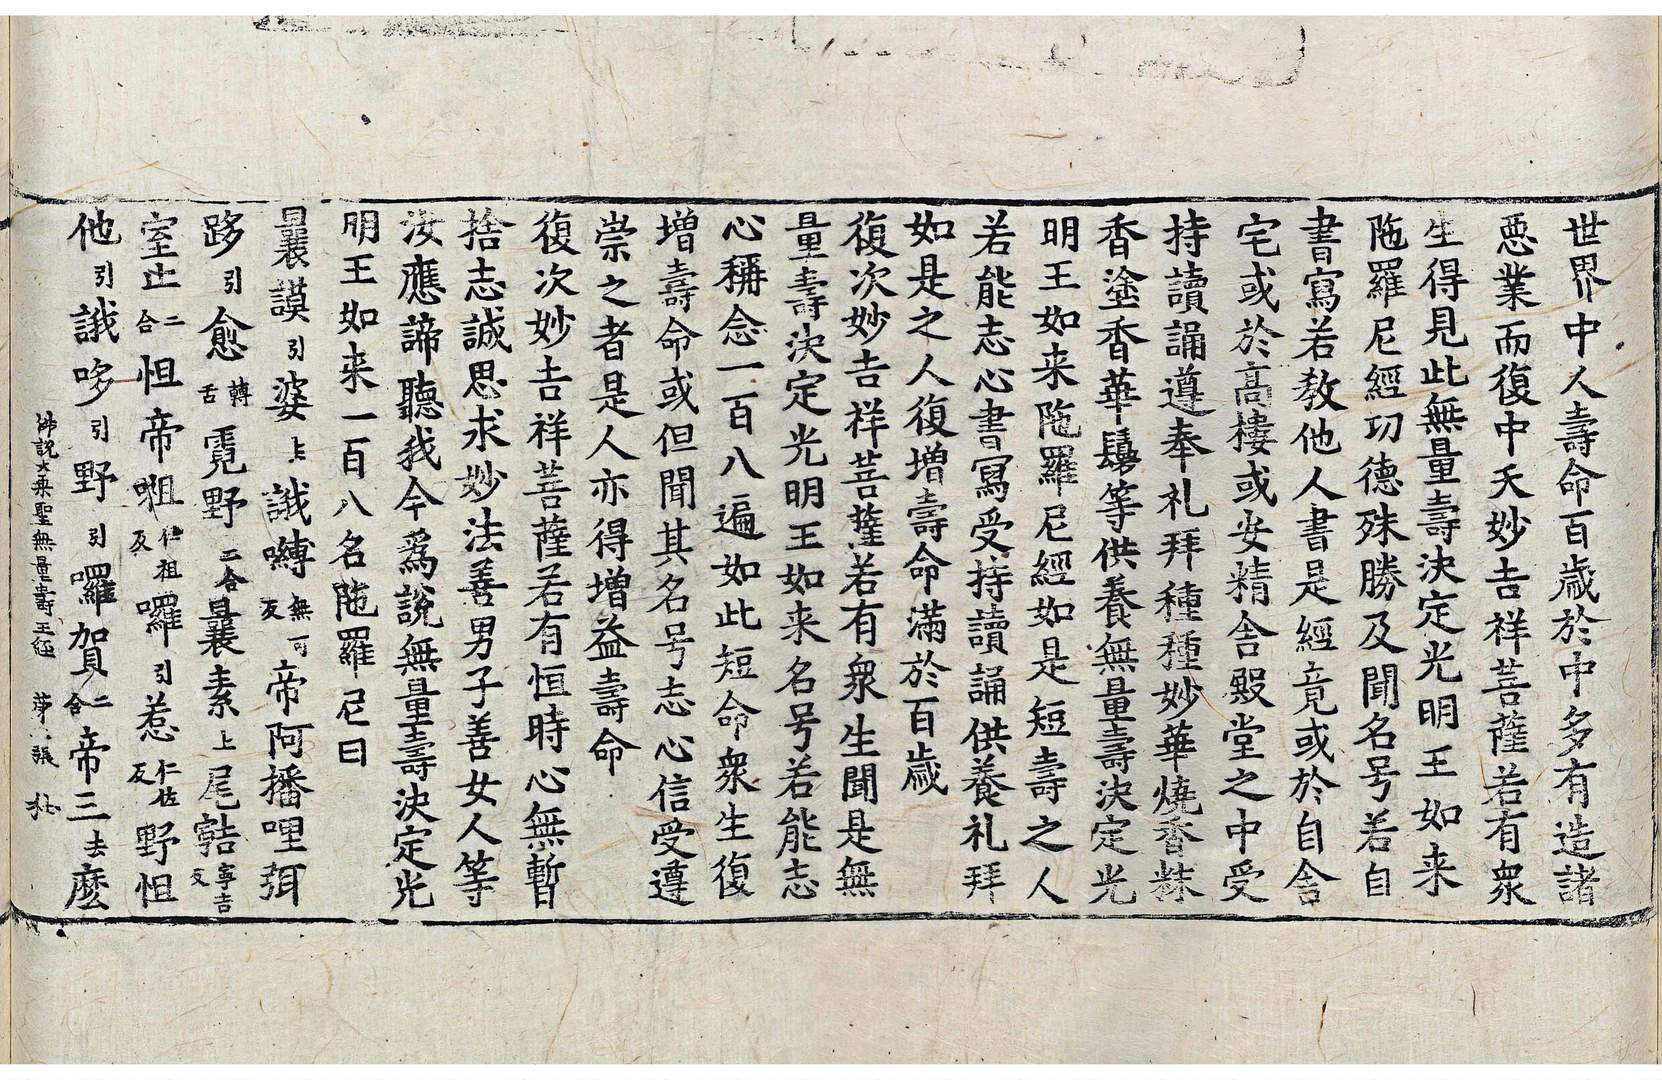 世界中人壽命百歲於中多有造諸
惡業而復中夭妙吉祥菩薩若有衆
生得見此無量壽決定光明王如来
陁羅尼經功德殊勝及聞名号若自
書寫若教他人書是經竟或於自舍
宅或於高樓或安精舍殿堂之中受
持讀誦遵奉礼拜種種妙華燒香粖
香塗香華鬘等供養無量壽決定光
明王如来陁羅尼經如是短壽之人
若能志心書寫受持讀誦供養礼拜
如是之人復增壽命滿於百歲
復次妙吉祥菩薩若有衆生聞是無
量壽決定光明王如来名号若能志
心稱念一百八遍如此短命衆生復
增壽命或但聞其名号志心信受遵
崇之者是人亦得增益壽命
復次妙吉祥菩薩若有恒時心無暫
捨志誠思求妙法善男子善女人等
汝應諦聽我今爲說無量壽決定光
明王如来一百八名陁羅尼曰
曩謨引婆上誐嚩無可反帝阿播哩弭
跢引愈轉舌霓野二合曩素上尾𩐬寧吉反
室止二合怛帝𭉨仁祖反囉引惹仁佐反野怛
他引誐哆引野引囉賀二合帝三去麽
佛說大乘聖無量壽王經 第八張